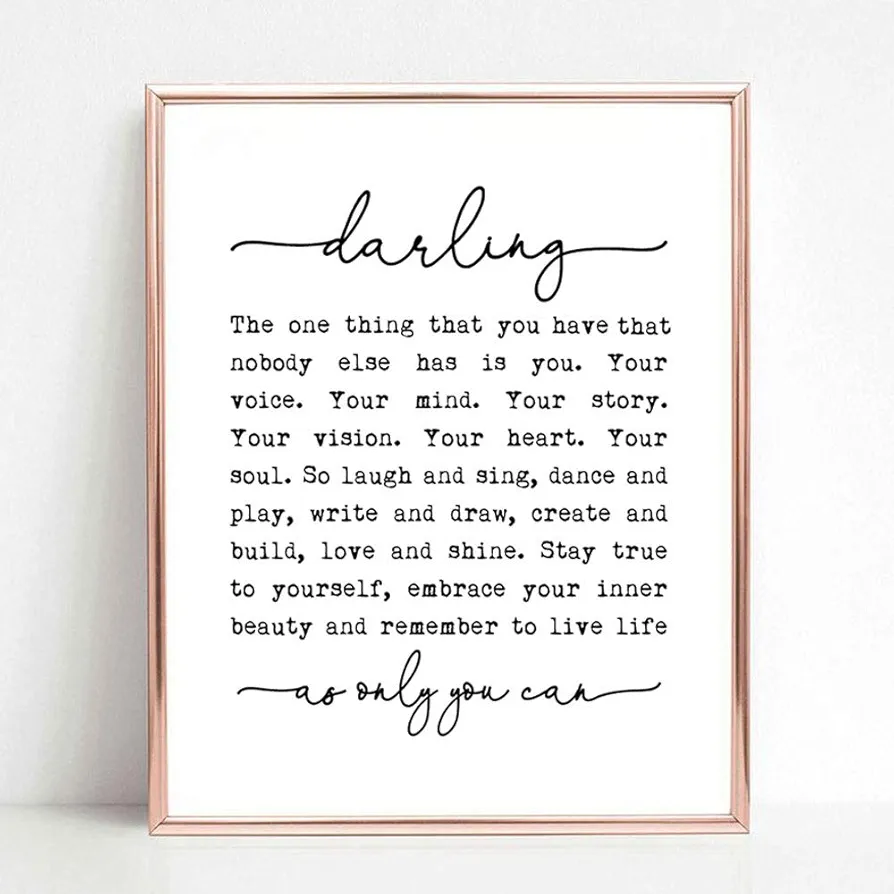 darling
The one thing that you have that
nobody else has is you. Your
voice. Your mind. Your story.
Your vision. Your heart. Your
soul. So laugh and sing, dance and
play, write and draw, create and
build, love and shine. Stay true
to yourself, embrace your inner
beauty and remember to live life
as only you can